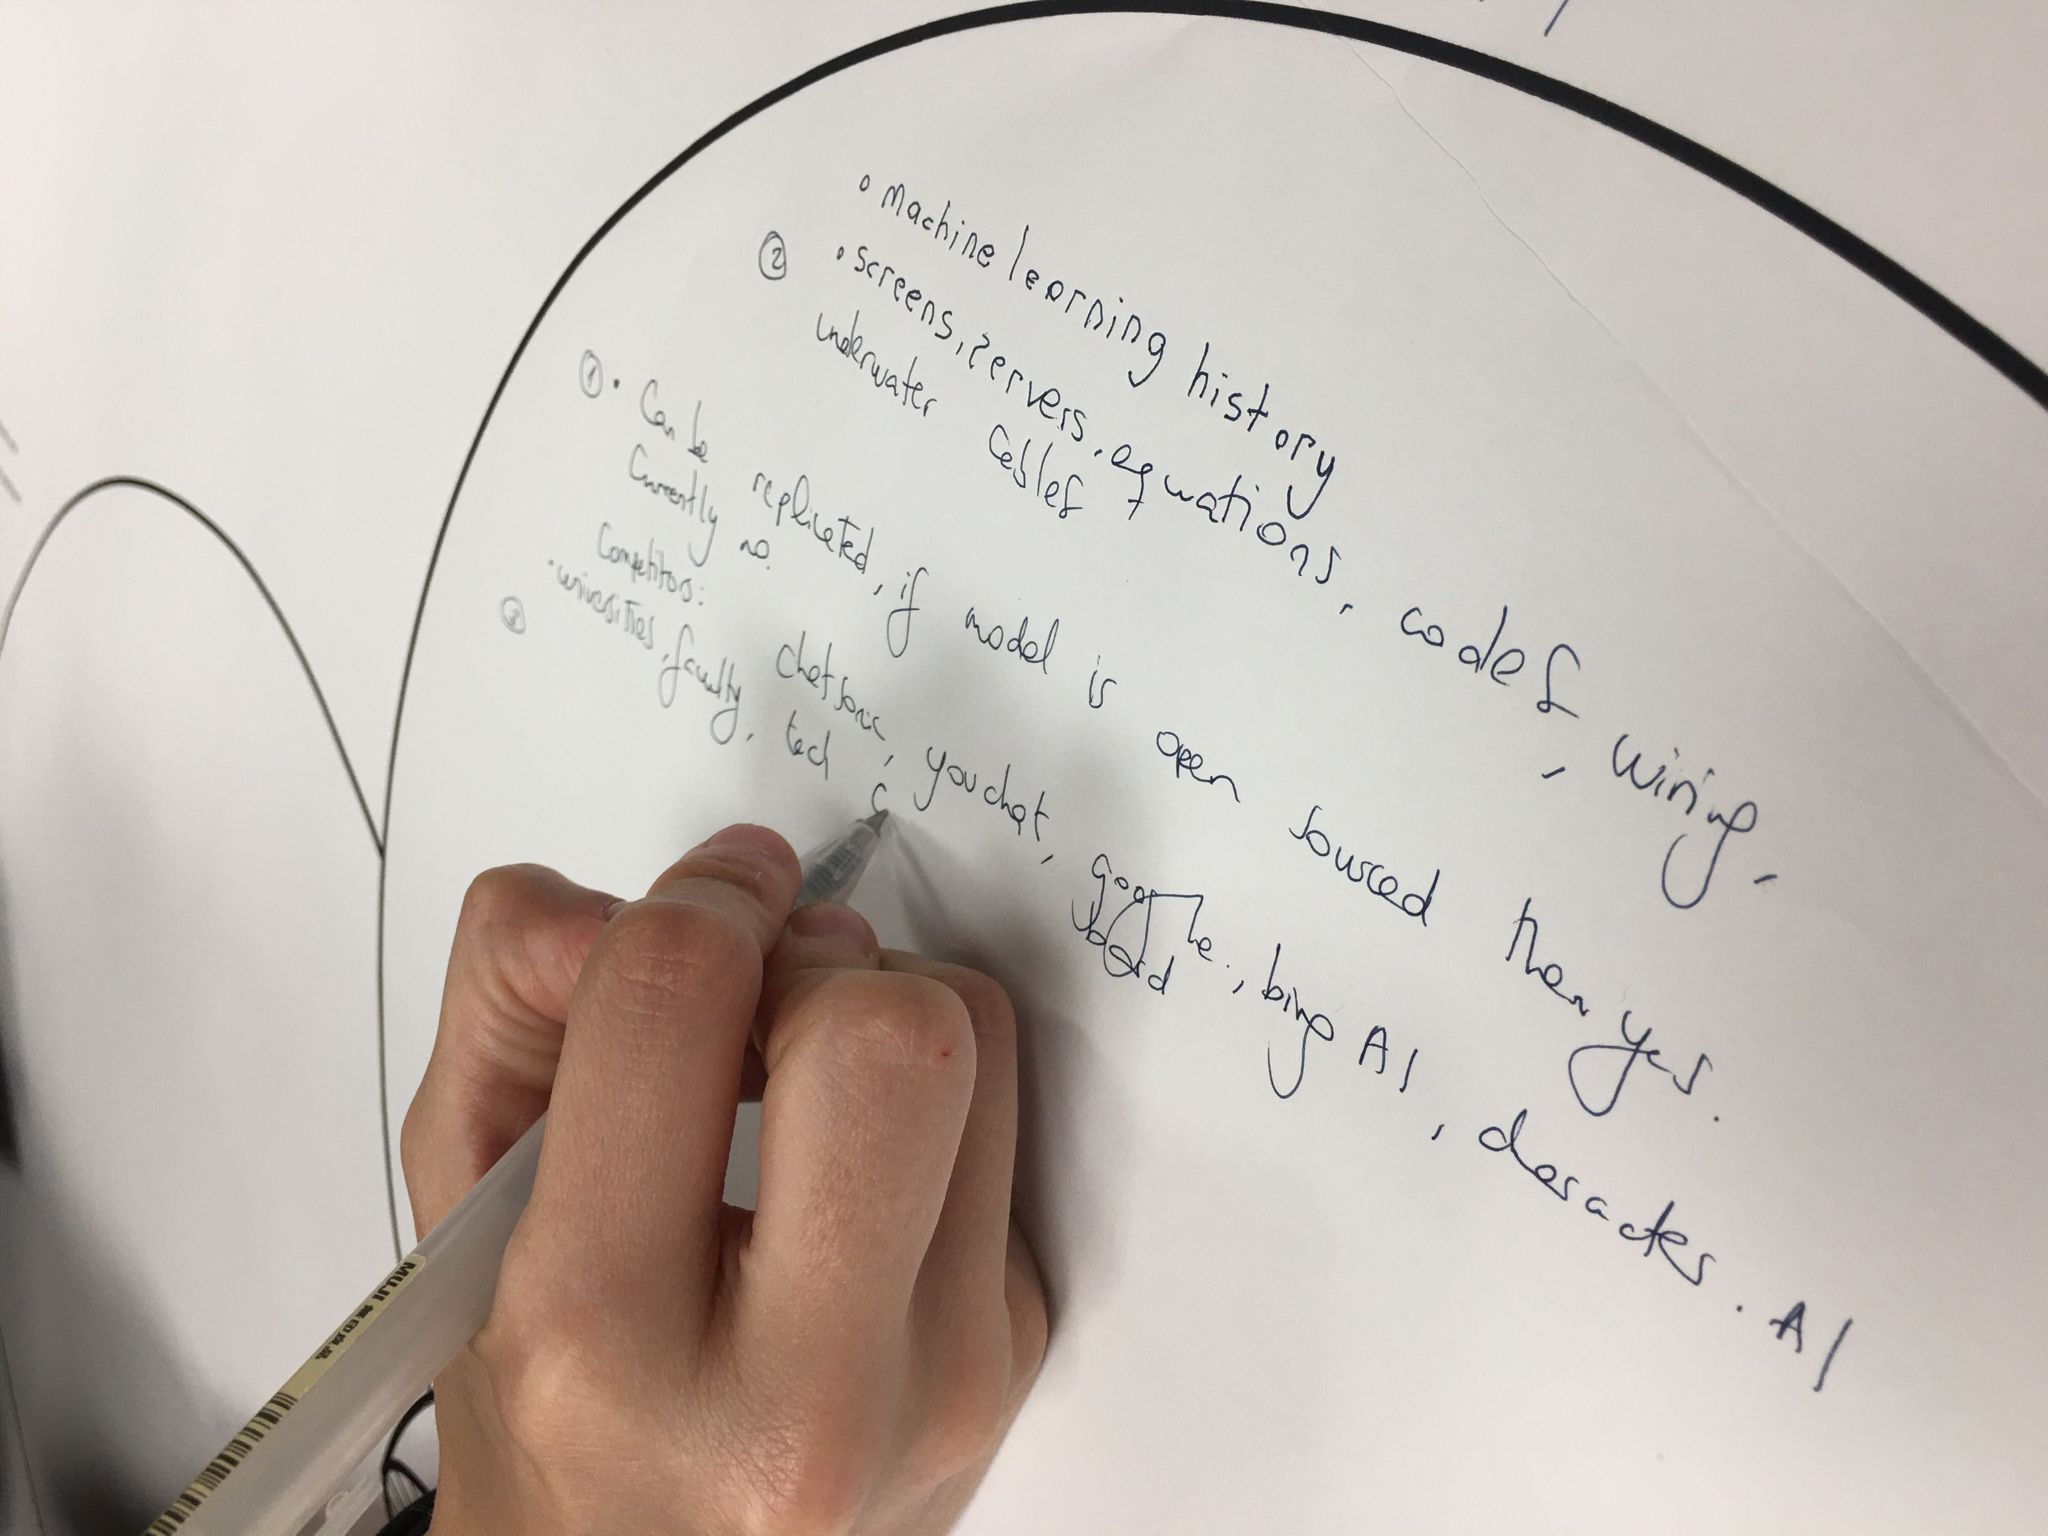 • machine learning history
② • screens, servers, equations, codes, wiring,
underwater cables
① • Can be replicated, if model is open sourced then yes.
Currently no.
Competitors: chatsonic, youchat, google, bing AI, AI
bard
③ • universities, faculty, tech c
MUJI 無印良品